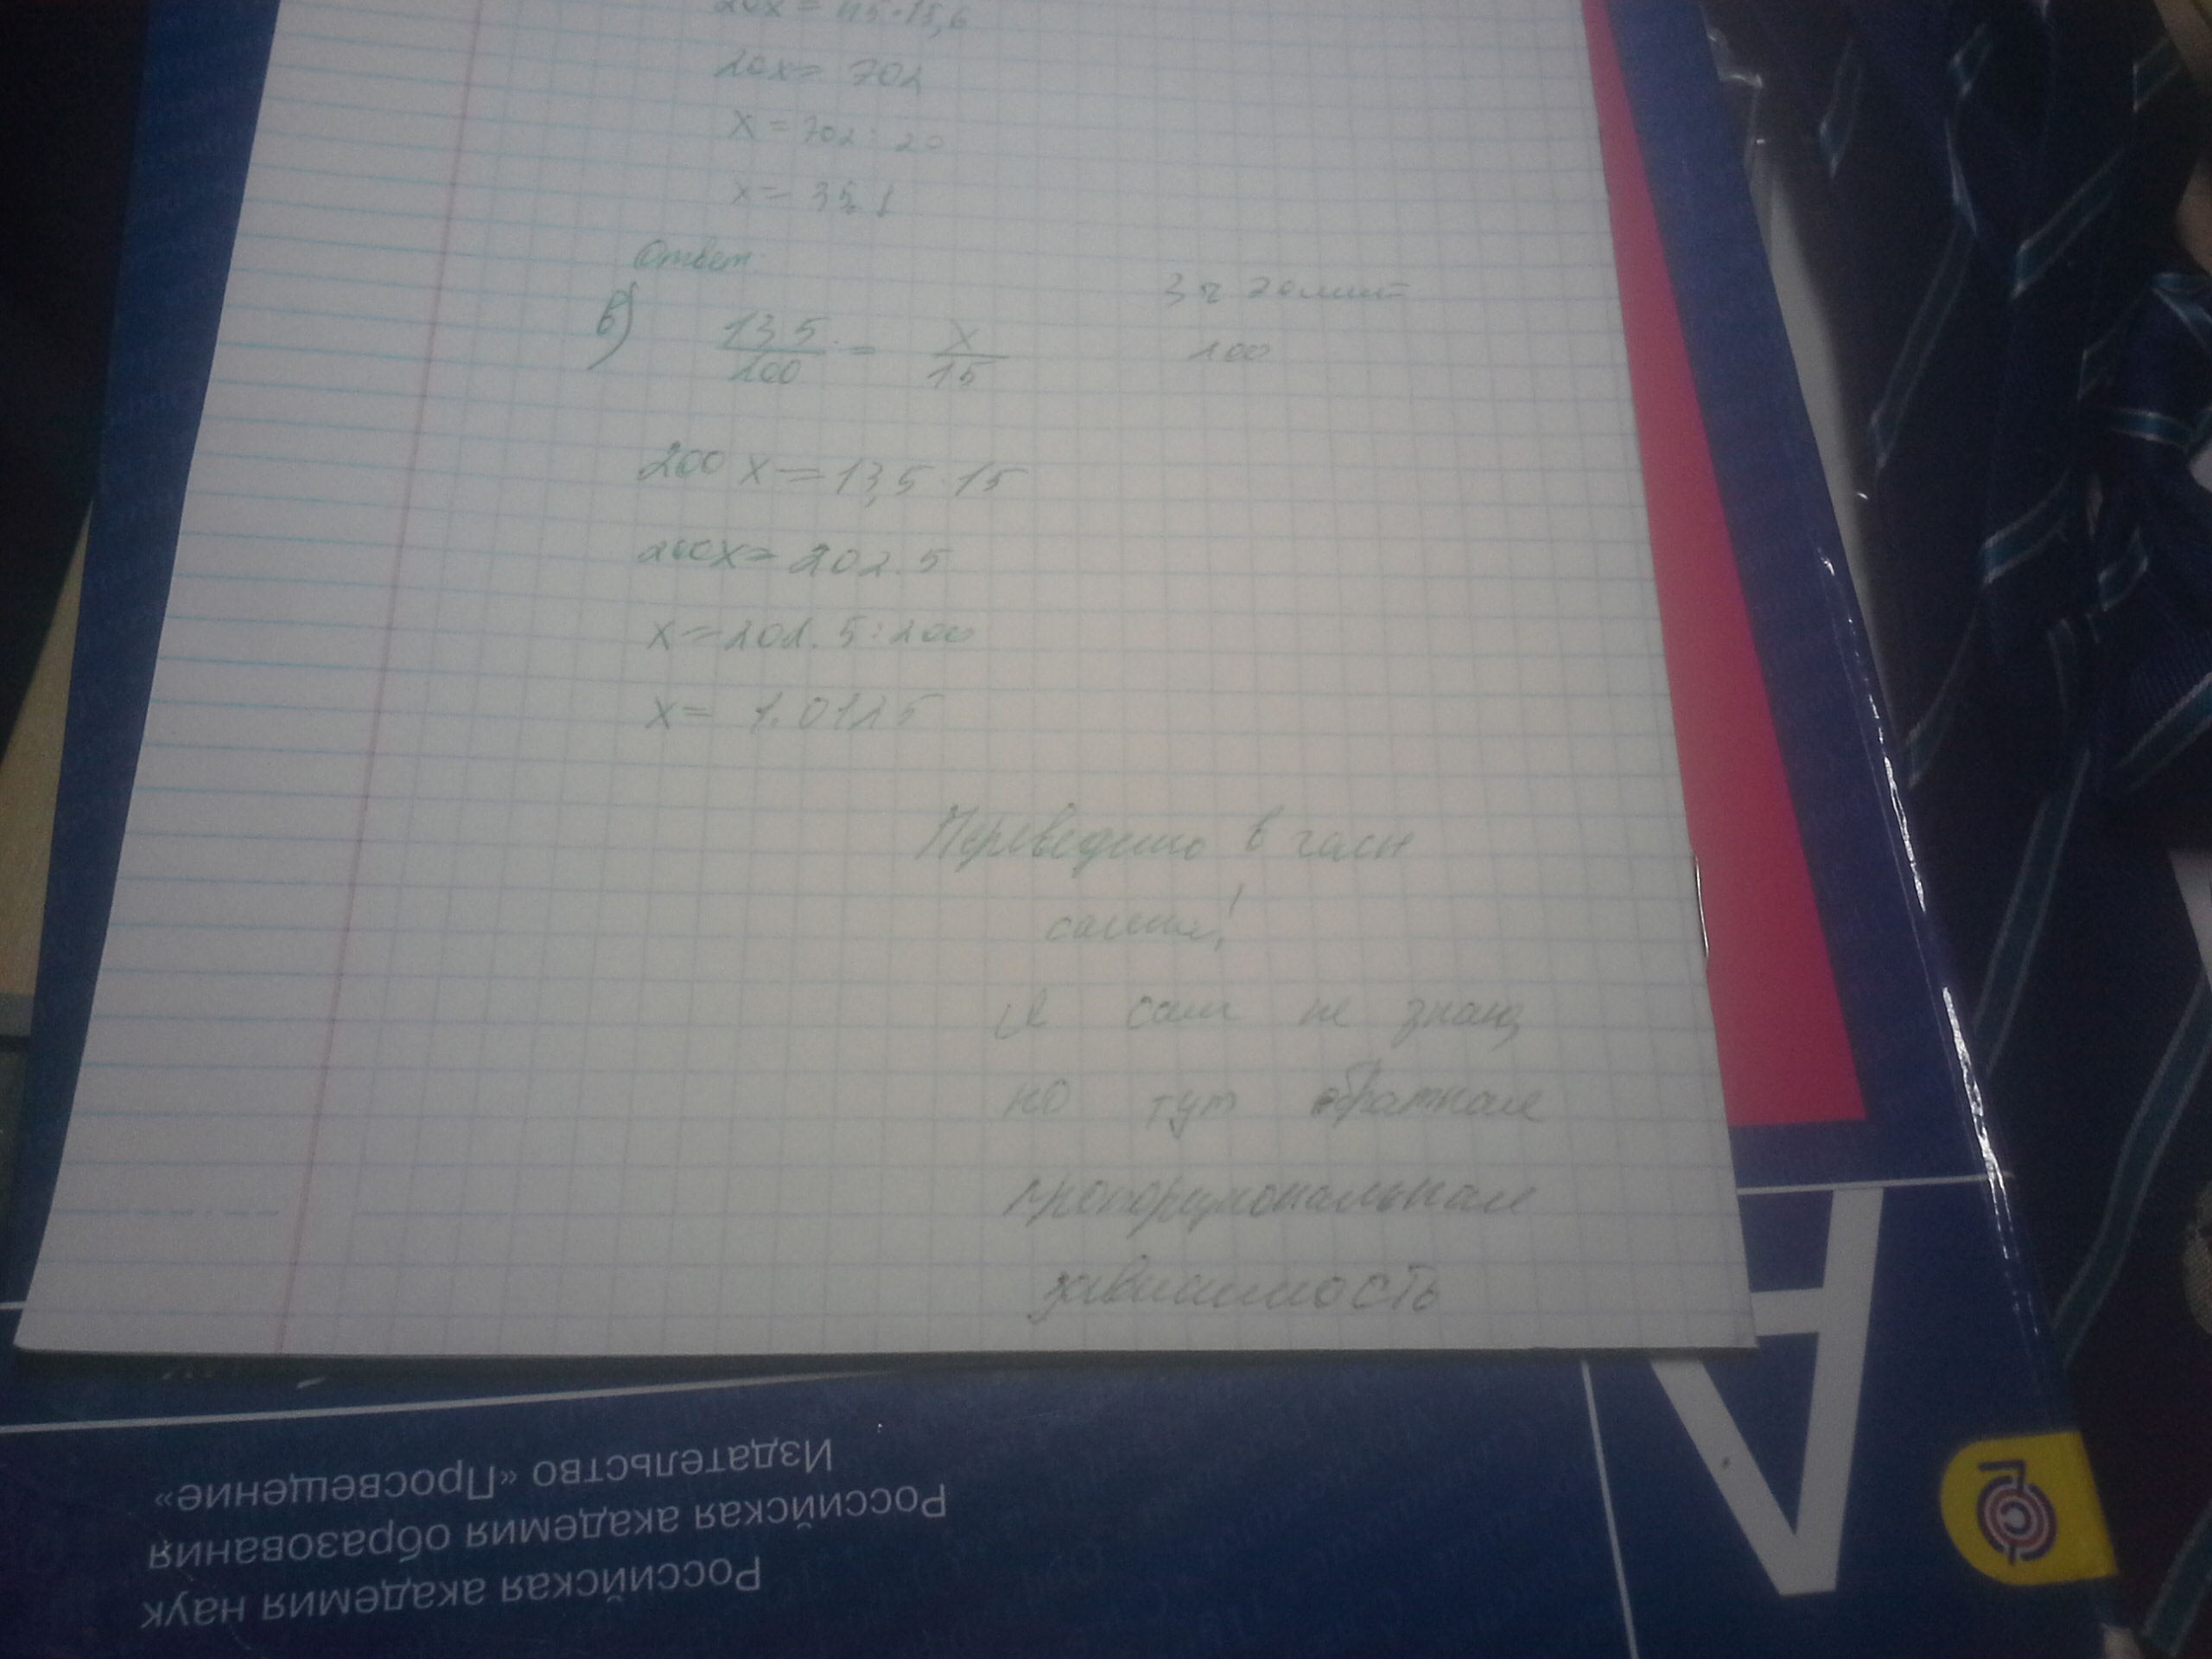 20x = 45·15,6
20x = 702
x = 702 : 20
x = 35.1
Ответ
3 ч 20 мин =
200
в) 13,5/200 = x/15
200 x = 13,5 · 15
200x = 202.5
x = 202.5 : 200
x = 1.0125
в часы
сами!
Я сам не знаю
но тут обратная
пропорциональная
зависимость
А
Издательство «Просвещение»
Российская академия образования
Российская академия наук